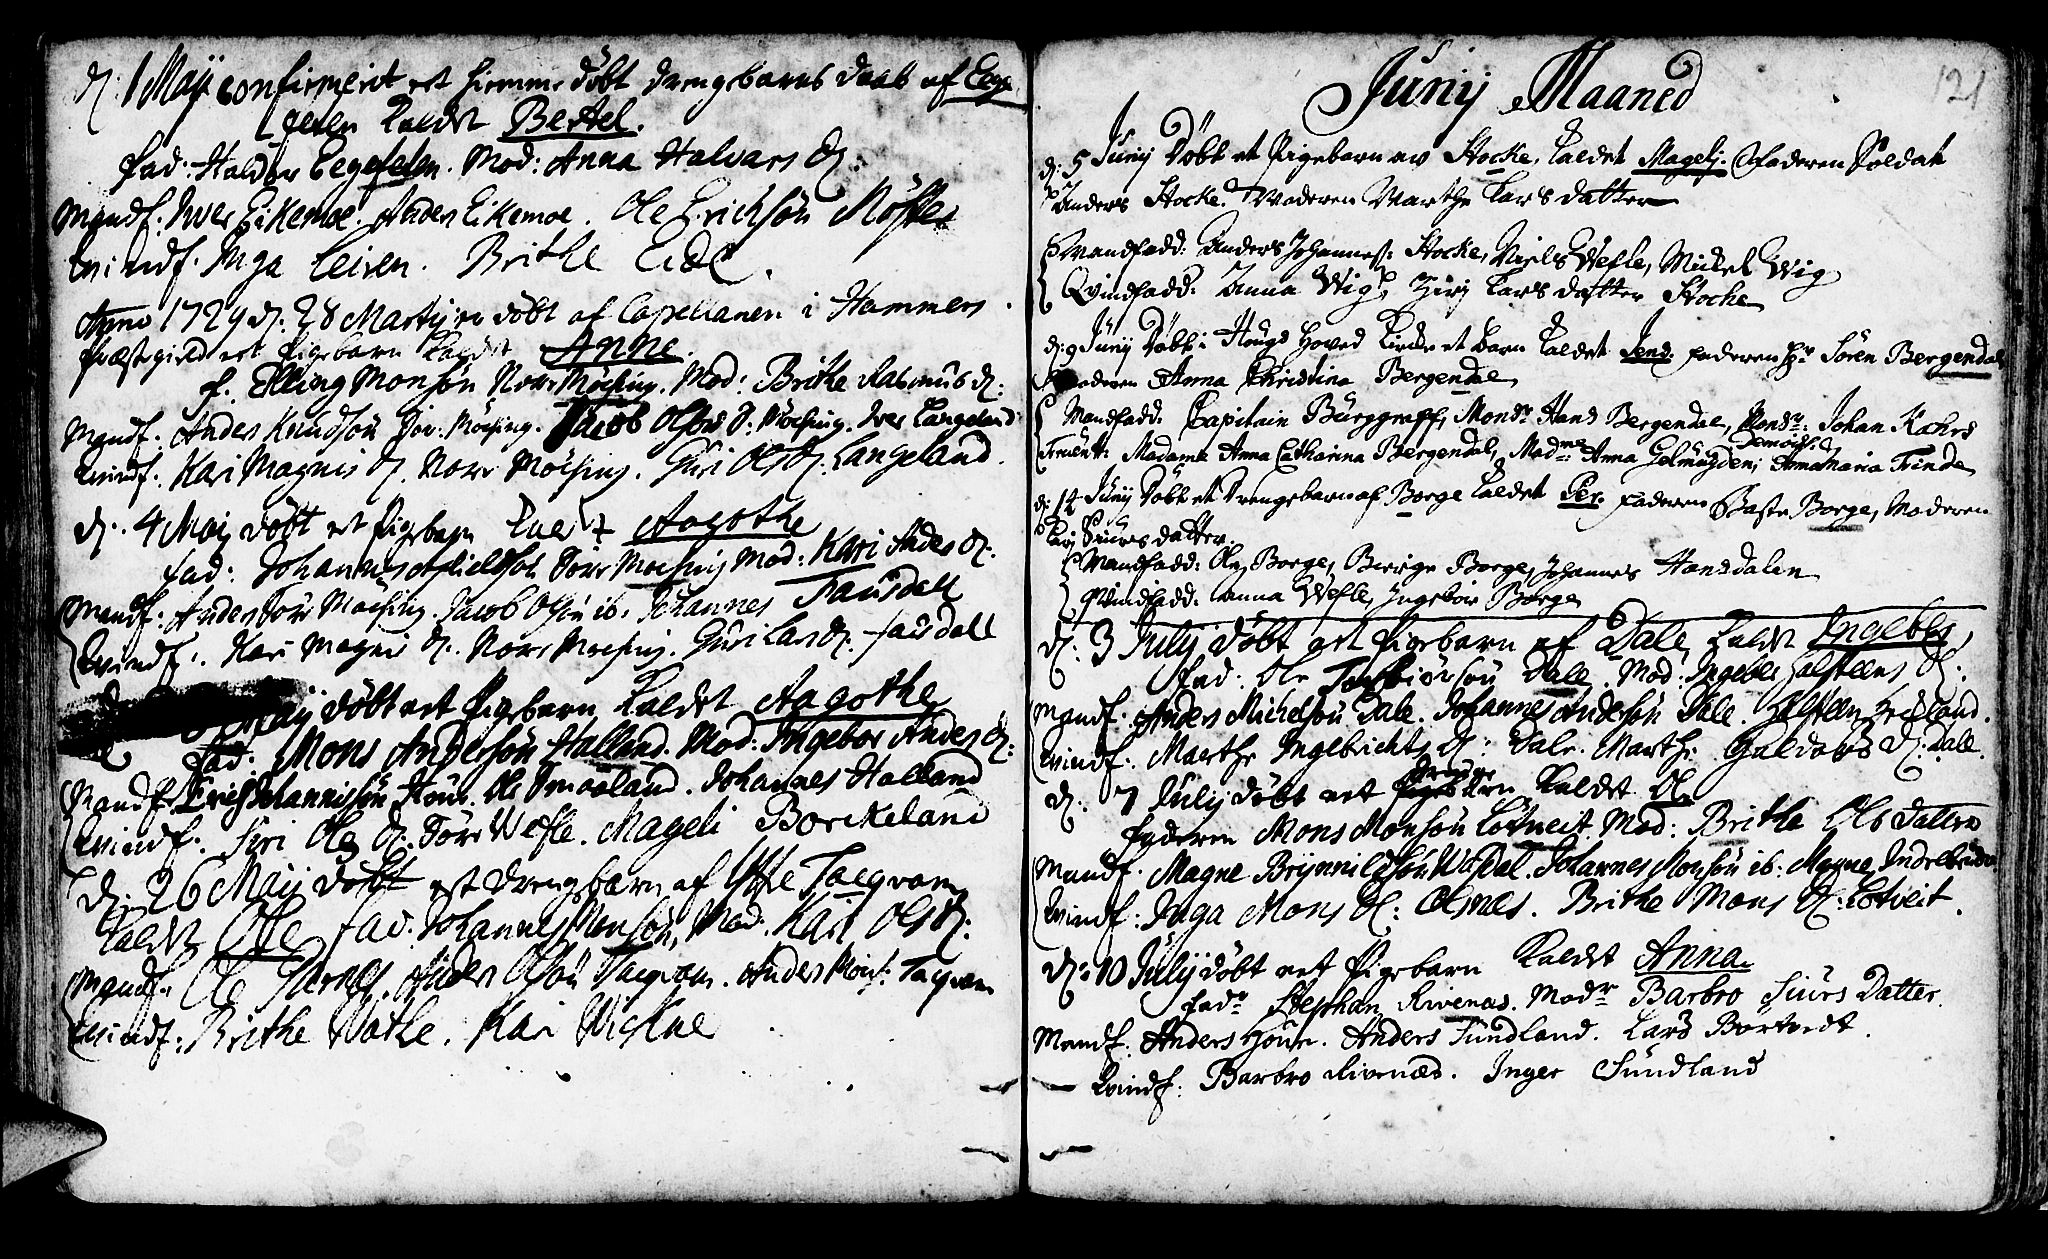 d: 1 Maij confirmerit et hiemme döbt drengebarns daab af Eege
felen kaldet Bertel.
fad: Haldor Eegefelen. Mod: Anna Halvars d:
Mandf: Iver Eikemoe. Anders Eikemoe. Ole Erichsön
Qvindf: Inga Leiren. Brithe Eide.
Anno 1729 d: 28 Martij er döbt af Capellanen i Hammers
præstegield et Pigebarn kaldet Anne.
f. Elling Monsön Norr Möching. Mod: Brithe Rasmus d:
Mandf: Anders Knudsön Sör Möching. Jacob Olsön S: Möching. Iver Langeland
Qvindf: Kari Magnis d. Norr Möching. Guri Ols d: Langeland.
d. 4 Maij döbt et Pigebarn kaldet Aagothe
fad: Johannes Sörr Möching Mod: Kari Anders d:
Mandf: Anders Sörr Möching. Jacob Olsön ib: Johannes Fausdall
Qvindf: Kari Magnis d. Norr Moching. Guri Lars d. Fausdall
Maij döbt et Pigebarn kaldet Aagothe
fad: Mons Andersön Halland. Mod: Ingebor Anders d:
Mandf: Erich Johannissön Houe. Ole Smaaland. Johannes Halland
Qvindf: Siri Ole d: Sörr Wefle. Mageli Borckeland
d: 26 Maij döbt et drengbarn af Ytte Tacqvam
kaldet Ole fad: Johannes Monsön, Mod: Kari Ols d:
Mandf: Ole Anders Olsön Tacqvam. Anders Mons: Tacqvam
Qvindf: Brithe Kari
121
Junij Maaned
d: 5 Junij Döbt et Pigebarn av Stocke, kaldet Magelj. Faderen Soldat
Anders Stocke. Moderen Marthe Lars datter
Mandfadd: Anders Johannes: Stocke, Niels Wefle, Mickel Wig
Qvindfadd: Anna Wig, Zirj Lars datter Stocke
d: 9 Junij Döbt i Hougs Hoved Kircke et barn kaldet Jens. Faderen Hr Sören Bergendal
Moderen Anna Christina Bergendal
Mandfadd: Capitain Burggraff, Monsr Hans Bergendal, Monsr: Johan Kahrs
Fruent: Madame Anna Catharina Bergendal, Madme Anna Gelmuyden, Demois: Annamaria Finde
d: 12 Junij Döbt et Drengebarn af Borge kaldet Per. Faderen Baste Borge, Moderen
Kari Siurs datter.
Mandfadd: Ole Borge, Börge Borge, Johannes Hansdalen
Qvindfadd: Anna Wefle, Ingebor Borge
d: 3 Julij döbt et Pigebarn af Dale kaldet Ingebor,
fad: Ole Torbiörsön Dale. Mod: Ingebor Halsteens d:
Mandf: Anders Michelsön Dale. Johannes Andersön Dale. Halsteen Hesland.
Qvindf: Marthe Ingebrichts d: Dale. Marthe Haldors d: Dale.
d: 7 Julij döbt et drenge kaldet Ole
faderen Mons Monsön Lotveit. Mod: Brithe Ols datter
Mandf: Magne Brynnildsön Wasdal. Johannes Monsön ib: Magne Indelbride
Qvindf: Inga Mons d: Olsnes. Brithe Mons d: Lotveit.
d: 10 Julij döbt et Pigebarn kaldet Anna.
fadr Stephan Rivenæs. Modr Barbro Siurs Datter.
Mandf: Anders Houe. Anders Sundland. Lars Börtvedt.
Qvindf: Barbro Rivenæs. Inger Sundland